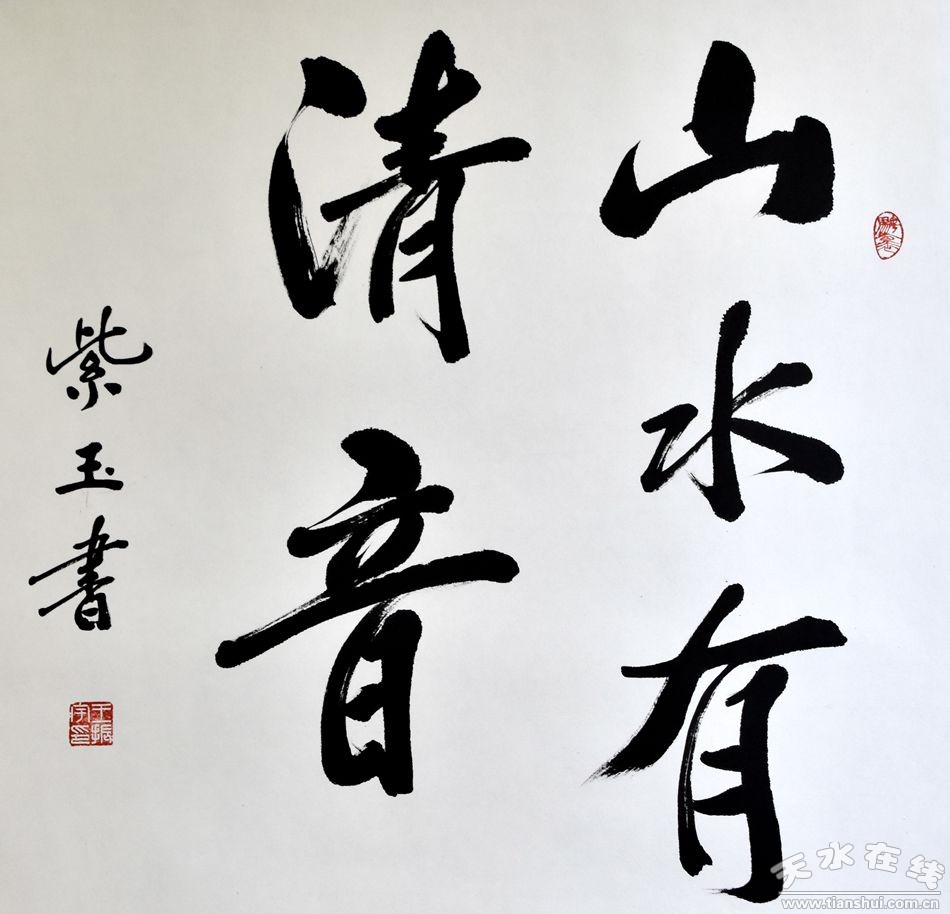 山水有
清音
紫玉書
天水在线
www.tianshui.com.cn